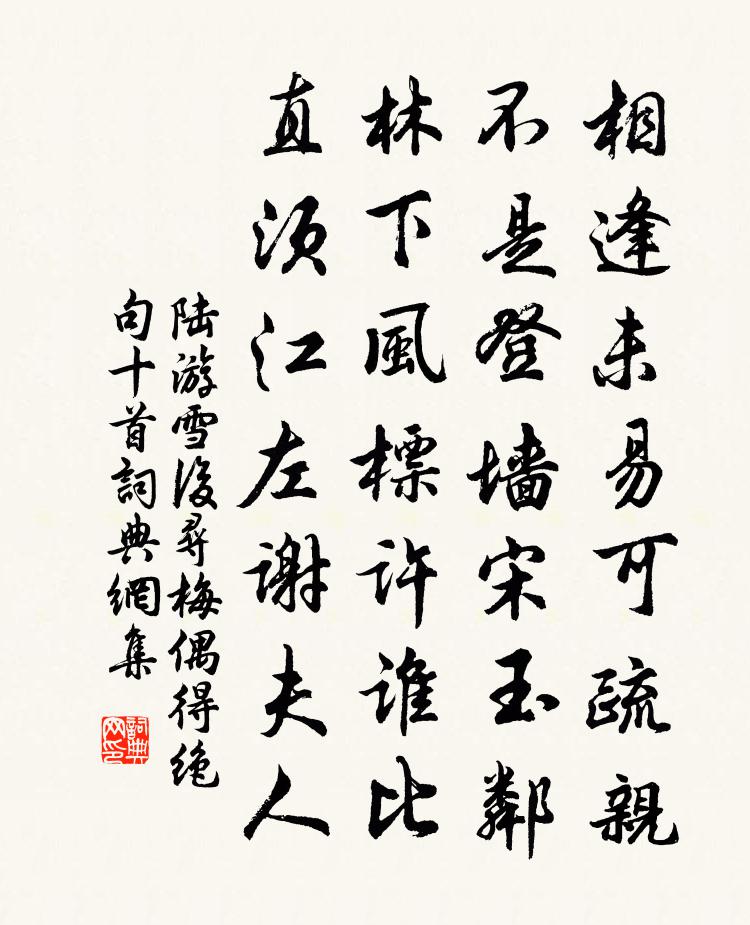 相逢未易可疏親
不是登墙宋玉鄰
林下風標許誰比
直須江左謝夫人
陆游雪後尋梅偶得绝
句十首詞典網集
詞典网印